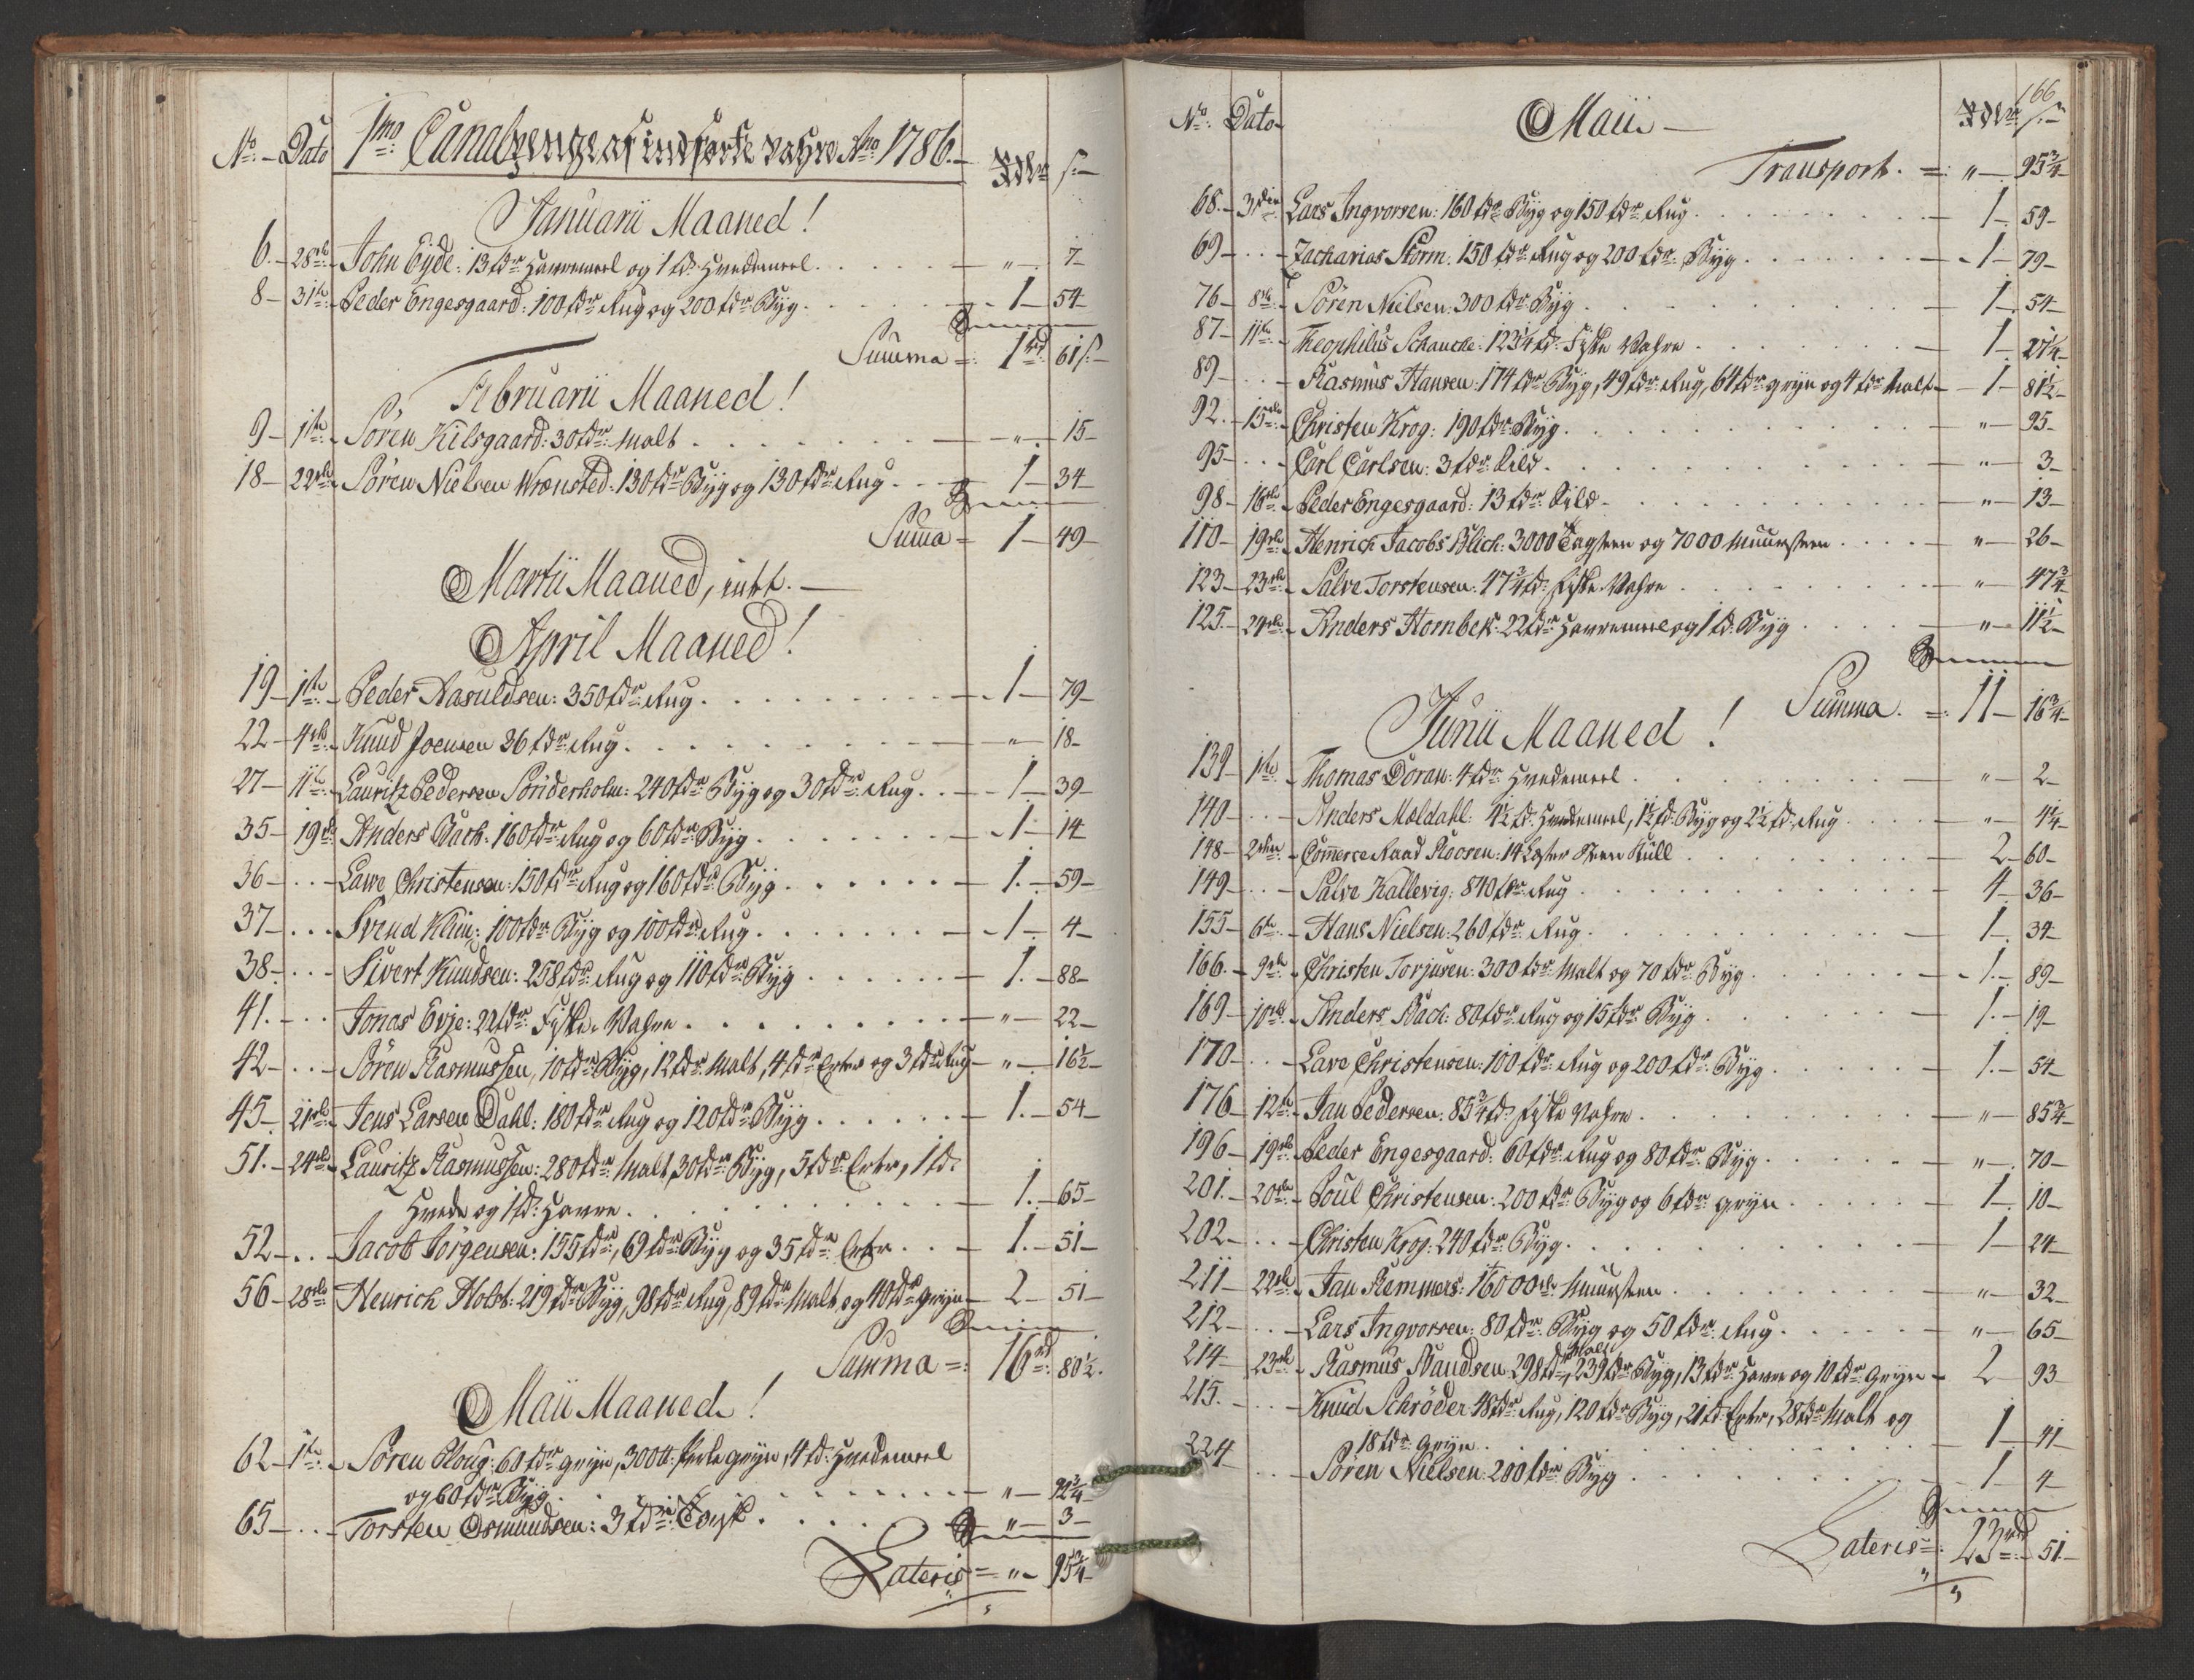 No. – Dato 1mo: Canalpenge af indførte Vahre Ano. 1786. – Rdlr s. –
Januarii Maaned!
6. – 28de. – John Eyde: 13 tdr. Havremeel og 1 td. Hvedemeel. . . . . . – " – 7 –
8 – 31te. – Peder Engesgaard: 100 tdr. Rug og 200 tdr. Byg. . . . . – 1 – 54 –
Summa =: 1rd: 61 s. –
Februarii Maaned!
9 – 1te. – Sören Kilsgaard: 30 tdr. Malt . . . . . – " – 15 –
18 – 22de. – Sören Nielsen Wrensted: 130 tdr. Byg og 130 tdr. Rug . . – 1 – 34 –
Summa = 1 – 49 –
Martii Maaned, intet. –
April Maaned!
19 – 1te. – Peder Aasuldsen: 350 tdr. Rug . . . . . – 1 – 79 –
22 – 4de. – Knud Joensen 36 tdr. Rug . . . . . – " – 18 –
27 – 11te. – Lauritz Pedersen Sönderholm: 240 tdr. Byg og 30 tdr. Rug. . – 1 – 39 –
35 – 19de. Anders Bach: 160 tdr. Rug og 60 tdr. Byg . . . . – 1 – 14
36 – . . . – Lawe Christensen: 150 tdr. Rug og 160 tdr. Byg . . . . – 1. – 59 –
37 – . . . – Svend Klim: 100 tdr. Byg og 100 tdr. Rug . . . . – 1 – 4 –
38 – . . . – Sivert Knudsen: 258 tdr. Rug og 110 tdr. Byg . . . . – 1. – 88 –
41. – . . . Jonas Evje: 22 tdr. Fiske Vahre . . . . – " – 22 –
42 – . . – Sören Rasmussen, 10 tdr. Byg, 12 tdr. Malt, 4 tdr. Erter og 3 tdr. Rug – " – 16½ –
45 – 21de. – Jens Larsen Dahl: 180 tdr. Rug og 120 tdr. Byg . . . . – 1. – 54 –
51. – 24de. – Lauritz Rasmussen: 280 tdr. Malt, 30 tdr. Byg, 5 tdr. Erter, 1 td.
Hvede og 1 td. Havre . . . . . – 1. – 65 –
52 – . . – Jacob Jörgensen: 155 tdr., 69 tdr. Byg og 35 tdr. Erter . . – 1. – 51 –
56 – 28de. Henrich Holst: 219 tdr. Byg, 98 tdr. Rug, 89 tdr. Malt og 40 tdr. gryn – 2 – 51 –
Summa =: 16rd: 80½.
Maii Maaned!
62 – 1te. – Sören Ploug: 60 tdr. gryn, 300 ℔. Perlegryn, 4 td. Hvedemeel
og 60 tdr. Byg . . . . . – " – 92¾ –
65 – . . – Torsten Osmundsen: 3 tdr. Torsk . . . . – " – 3 –
Lateris = " – 95¾ –
166
No. Dato – Maii – Rdlr s. –
Transport. =: " – 95¾ –
68. – 3die. Lars Ingvorsen: 160 tdr. Byg og 150 tdr. Rug . . . . – 1 – 59 –
69 – . . . – Zacharias Storm: 150 tdr. Rug og 200 tdr. Byg . . . . – 1 – 79 –
76 – 8de. – Sören Nielsen: 300 tdr. Byg . . . . – 1 – 54 –
87 – 11te. – Theophilus Schancke: 123¼ td. Fiske Vahre . . . . – 1 – 27¼ –
89 – . . . – Rasmus Hansen: 174 tdr. Byg, 49 tdr. Rug, 64 tdr. gryn og 4 tdr. Malt – 1 – 81½ –
92. – 15de. – Christen Krog: 190 tdr. Byg . . . . – " – 95 –
95 – . . . – Carl Carlsen: 3 tdr. Sild . . . . – " – 3 –
98 – 16de. – Peder Engesgaard: 13 tdr. Sild . . . . – " – 13 –
110 – 19de. – Henrich Jacobs Blich: 3000 Tagsteen og 7000 Muursteen . . . . – " – 26 –
123 – 23de. – Salve Torstensen: 47¾ td. Fiske Vahre . . . . – " – 47¾
125 – 24de. – Anders Hornbek: 22 tdr. Havremeel og 1 td. Byg . . . . – " – 11½ –
Summa. =: 11 – 16¾ –
Junii Maaned!
139 – 1te. – Thomas Doran: 4 tdr. Hvedemeel . . . . – " – 2 –
140 – . . – Anders Moldahl: 4½ td. Hvedemeel, 1½ td. Byg og 2½ td. Rug . . . . – " – 4¼ –
148 – 2den. – Commerce Raad Roosen: 14 Læster Steen Kull . . . . – 2 – 60 –
149 – . . – Salve Kallevig: 840 tdr. Rug . . . . – 4 – 36 –
155 – 6te. – Hans Nielsen: 260 tdr. Rug . . . . – 1 – 34 –
166. – 9de. – Christen Torjusen: 300 tdr. Malt og 70 tdr. Byg . . . . – 1. – 89 –
169 – 10de. – Anders Bach: 80 tdr. Rug og 15 tdr. Byg . . . . – 1. – 19 –
170 – . . . – Lave Christensen: 100 tdr. Rug og 200 tdr. Byg . . . . – 1. – 54 –
176 – 12te. – Jan Pedersen: 85¾ td. Fiske Vahre . . . . – " – 85¾ –
196 – 19de. Peder Engesgaard: 60 tdr. Rug og 80 tdr. Byg . . . . – " – 70 –
201. – 20de. – Poul Christensen: 200 tdr. Byg og 6 tdr. gryn . . . . – 1 – 10 –
202 – . . . – Christen Krog: 240 tdr. Byg . . . . – 1 – 24 –
211 – 22de. – Jan Remmers: 16000de. Muursteen . . . . – " – 32 –
212 – . . . – Lars Ingvorsen: 80 tdr. Byg og 50 tdr. Rug . . . . – " – 65 –
214 – 23de. – Rasmus Baudsen 298 tdr. Malt, 239 tdr. Byg, 13 tdr. Havre og 10 tdr. Gryn – 2 – 93 –
215. – . . . – Knud Schröder 48 tdr. Rug, 120 tdr. Byg, 21 td. Erter, 28 tdr. Malt og
18 tdr. Gryn . . . . – 1 – 41 –
224 . . . – Sören Nielsen: 200 tdr. Byg . . . . – 1 – 4 –
Lateris =: 23rd =: – 51. –